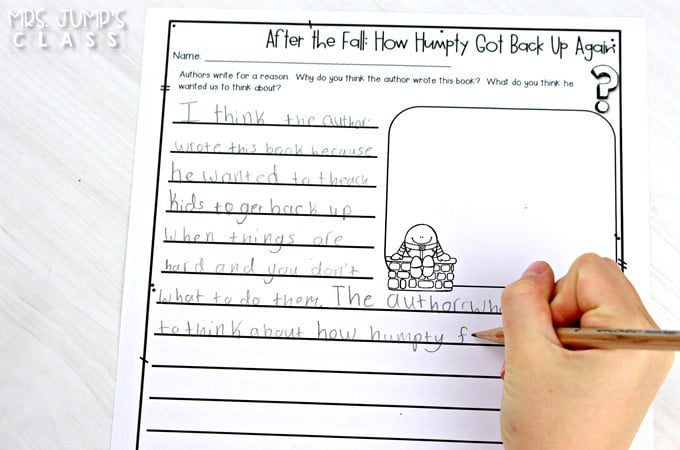 MRS. JUMP'S
CLASS
After the Fall: How Humpty Got Back Up Again
Name:
Authors write for a reason. Why do you think the author wrote this book? What do you think he
wanted us to think about?
I think the author
wrote this book because
he wanted to theach
kids to ger back up
when things are
hard and you don't
what to do them. The author wh
to think about how humpty f